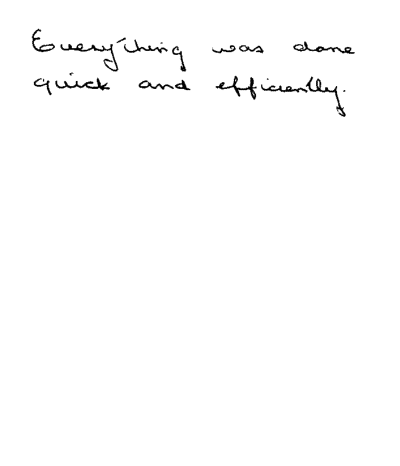 Everything was done
quick and efficiently.